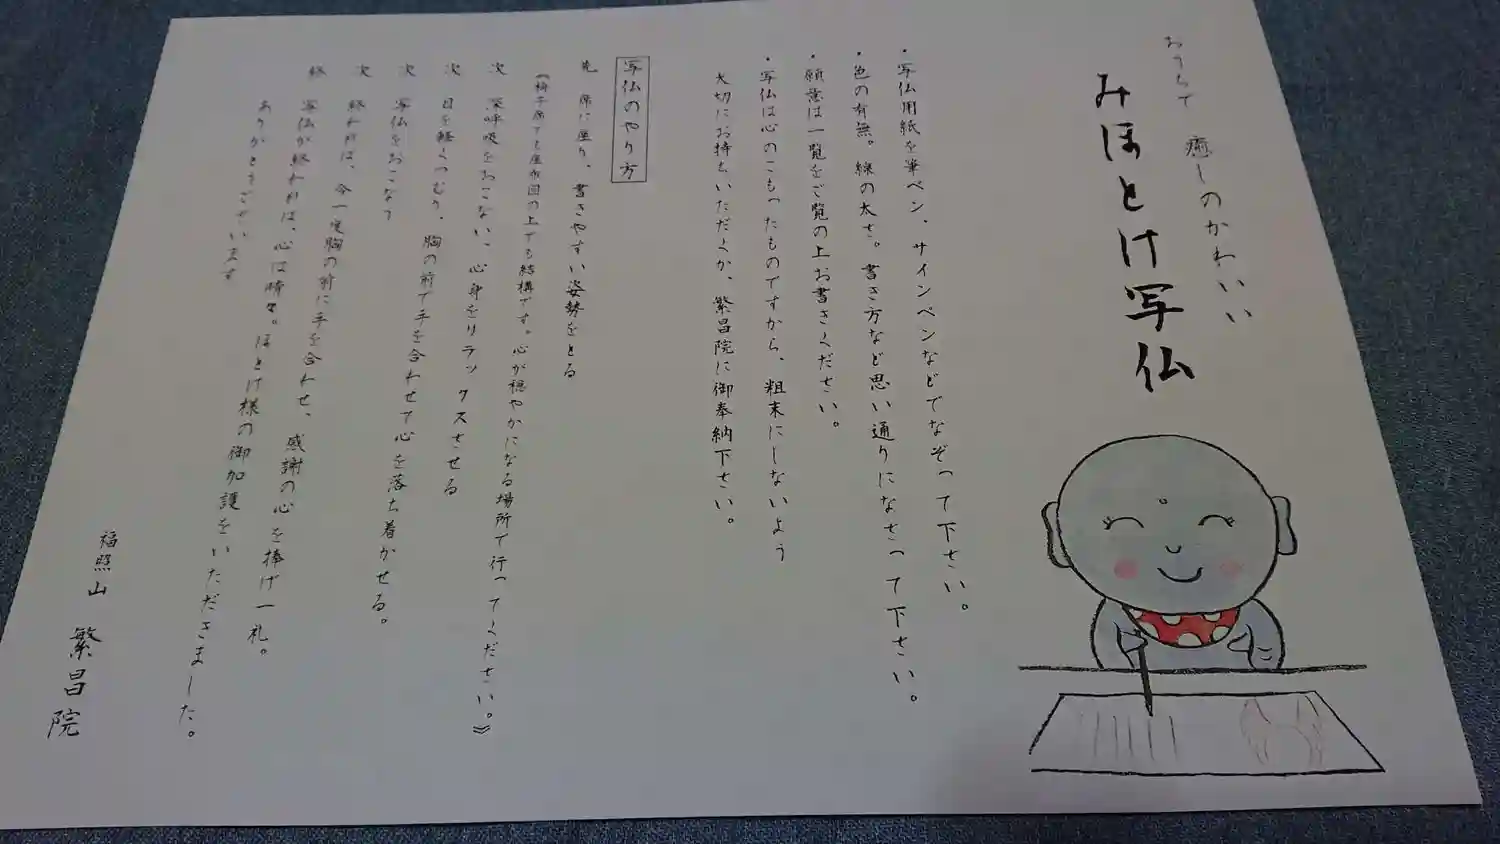 おうちで 癒しのかわいい
みほとけ写仏
・写仏用紙を筆ペン、サインペンなどでなぞって下さい。
・色の有無。線の太さ。書き方など思い通りになさって下さい。
・願意は一覧をご覧の上お書きください。
・写仏は心のこもったものですから、粗末にしないよう
大切にお持ちいただくか、繁昌院に御奉納下さい。
写仏のやり方
先 席に座り、書きやすい姿勢をとる
《椅子席でも座布団の上でも結構です。心が穏やかになる場所で行ってください。》
次 深呼吸をおこない、心身をリラックスさせる
次 目を軽くつむり、胸の前で手を合わせて心を落ち着かせる。
次 写仏をおこなう
次 終われば、今一度胸の前に手を合わせ、感謝の心を捧げ一礼。
終 写仏が終われば、心は晴々。ほとけ様の御加護をいただきました。
ありがとうございます
福照山 繁昌院